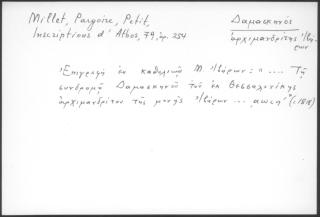 Millet, Pargoire, Petit,
Inscriptions d' Athos, 79, ἀρ. 254
Δαμασκηνός
ἀρχιμανδρίτης Ἰβή-
ρων
Ἐπιγραφὴ ἐν καθολικῷ Μ. Ἰβήρων: " .... Τῇ
συνδρομῇ Δαμασκηνοῦ τοῦ ἐκ Θεσσαλονίκης
ἀρχιμανδρίτου τῆς μονῆς Ἰβήρων ... ,αωιη΄" (:1818)